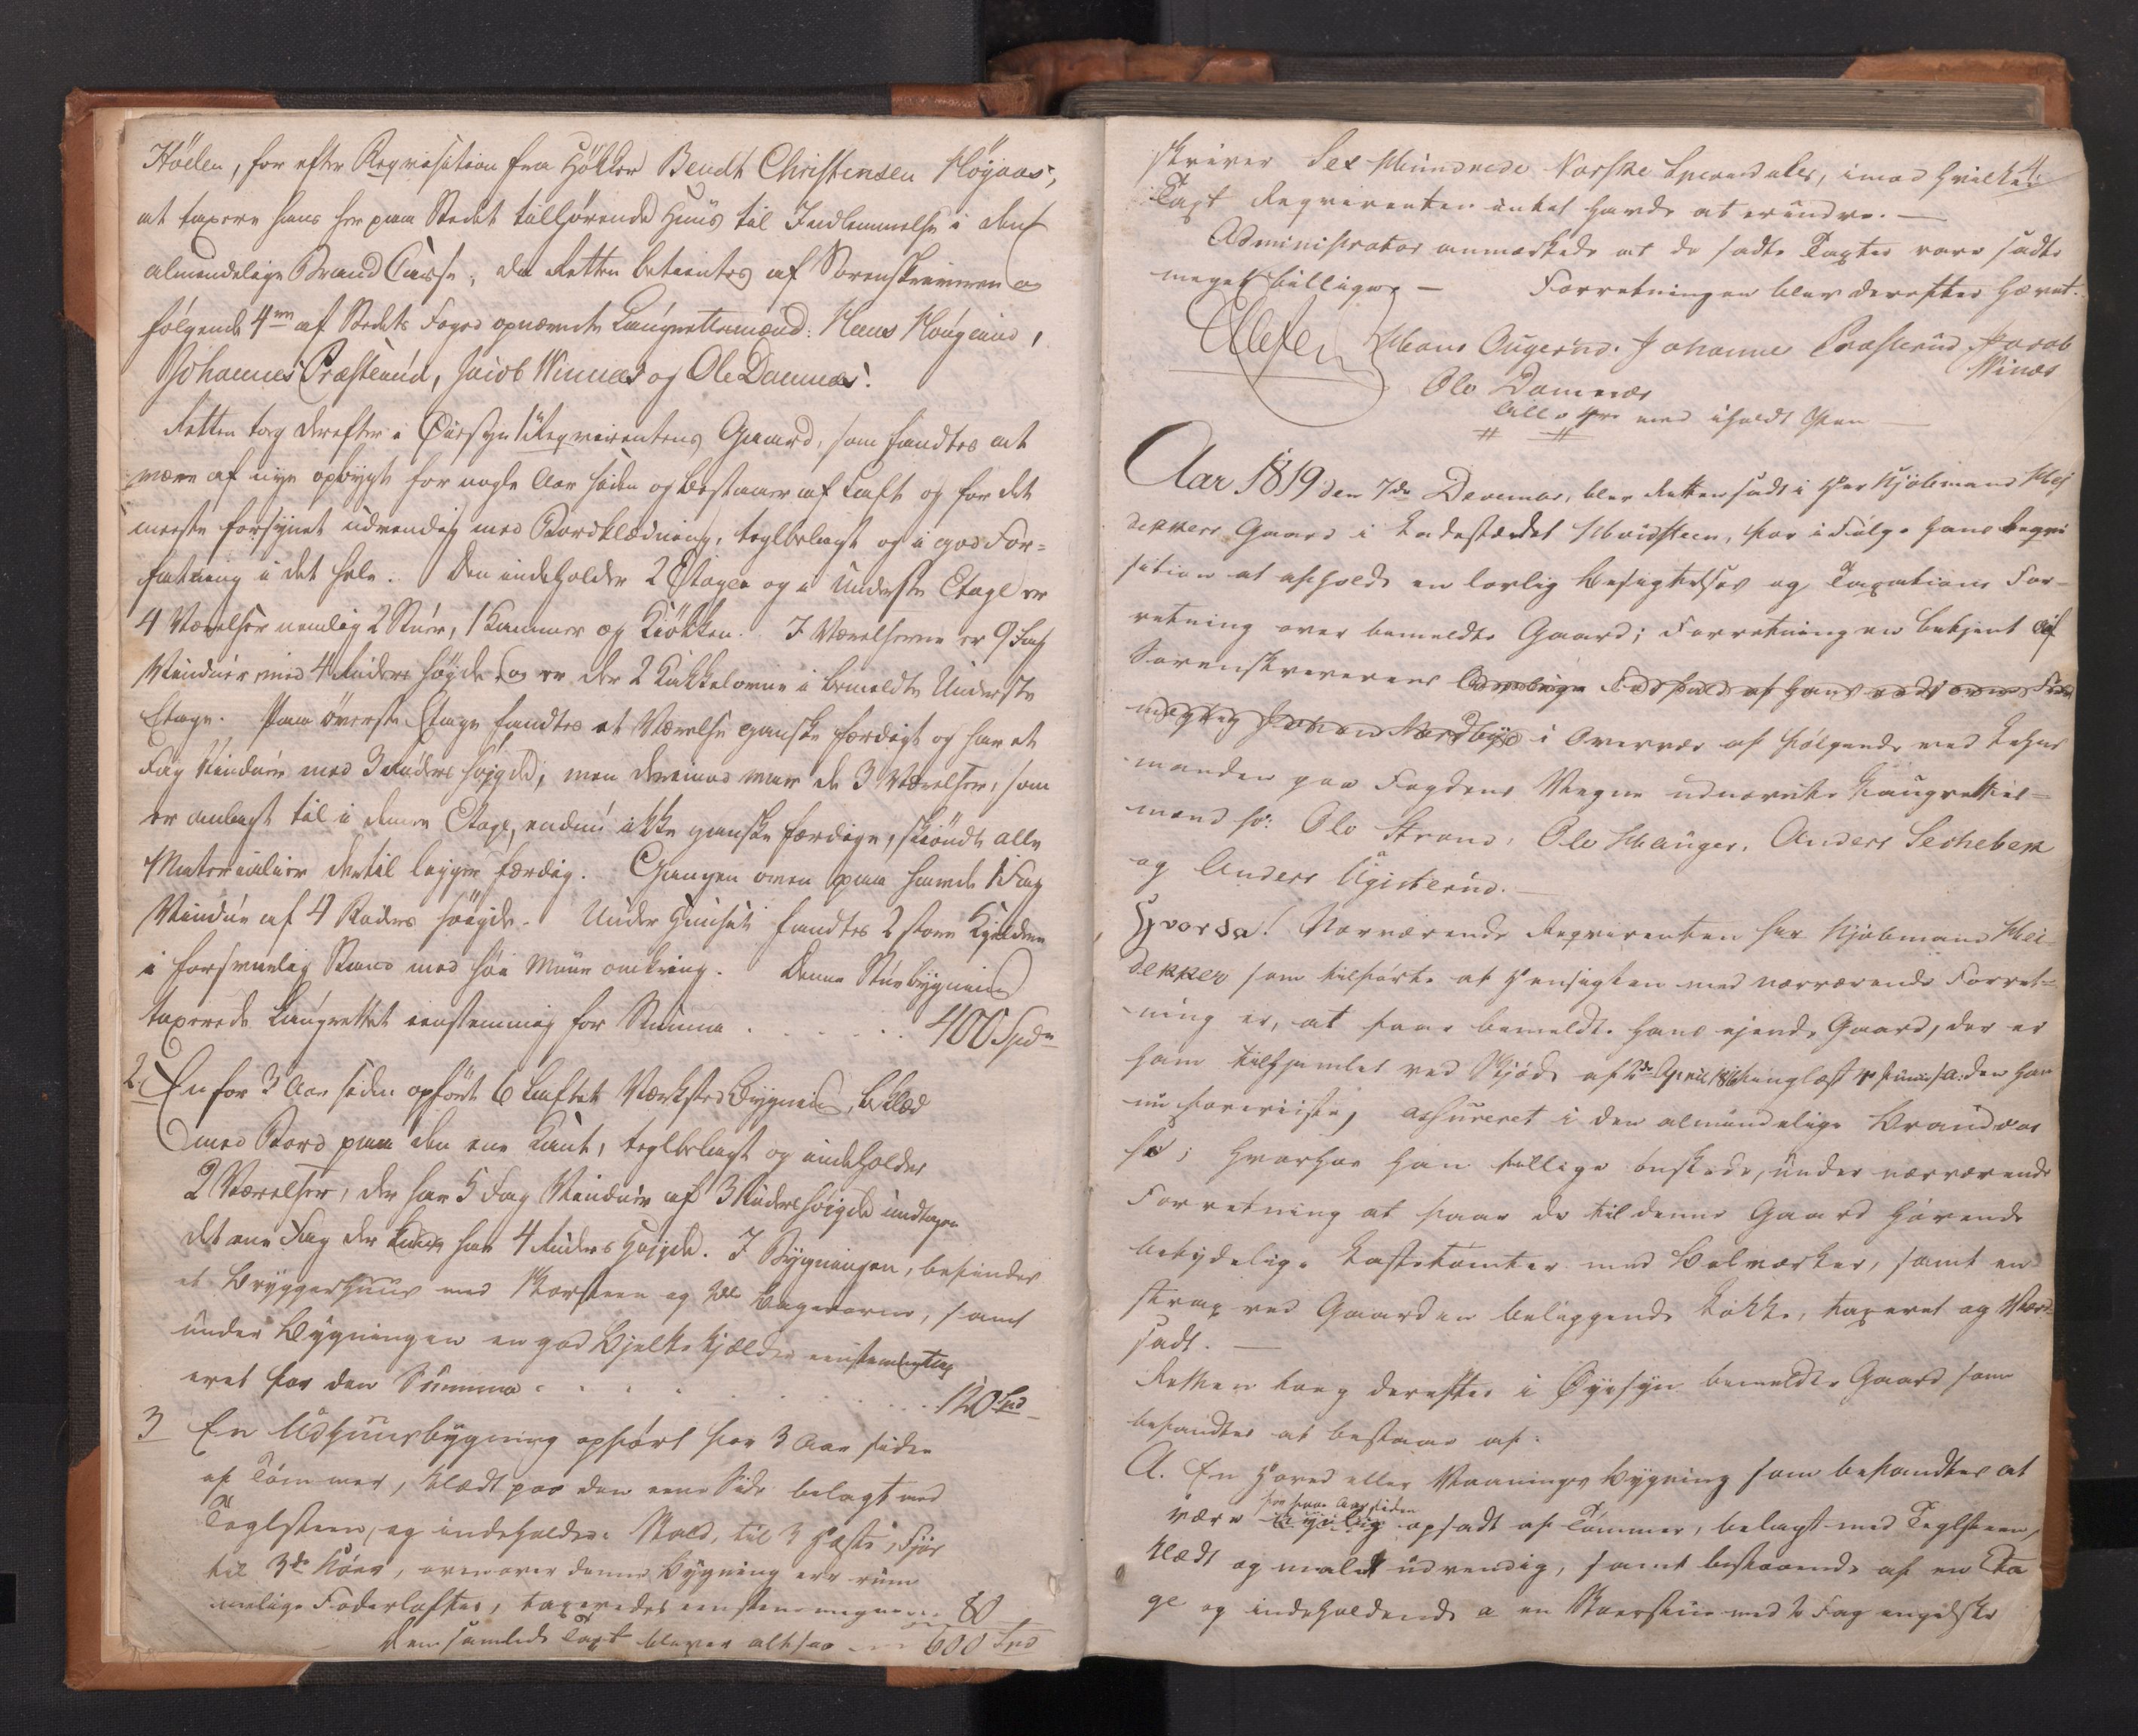 Höelen, for efter Reqvisition fra Høkker Bendt Christensen Høyaas,
at taxere hans her paa Stedet tilhørende Huus til Indlemmelse i den
almindelige Brand Casse; da Retten betientes af Sorenskriveren og
følgende 4re af Stedets Foged opnævnte Laugrettesmænd: Hans Haugerud,
Johannes Præsterud, Jacob Winnæs og Ole Damnæs.
Retten tog derefter i Øiesyn 1. Reqvirentens Gaard, som fandtes at
være af nye opbygt for nogle Aar siden og bestaaer af Laft og for det
meeste forsynet udvendig med Bordklædning, teglbelagt og i god For=
fatning i det hele. Den indeholder 2 Etager og i Underste Etage er
4 Værelser nemlig 2 Stuer, 1 Kammer og Kiøkken. I Værelserne er 9 Fag
Vinduer med 4 Ruders høyde, og er der 2 Kakkelovne i bemeldte Underste
Etage. Paa överste Etage fandtes et Værelse ganske færdigt og har et
Fag Vinduer med 3 Ruders høyde; men derimod var de 3 Værelser, som
er anlagt til i denne Etage, endnu ikke ganske færdige, skiöndt alle
Materialier dertil ligger færdig. Gangen oven paa havde 1 Fag
Vindue af 4 Ruders høigde. Under Huuset fandtes 2 store Kieldere
i forsvarlig Stand med høi Muur omkring. Denne Stuebygning
taxerede Laugrettet eenstemmig for Summa . . . . . 400 Spd
2. En for 3 Aar siden opført 6 Laftet Værksted Bygning, beklæd
med Bord paa den ene Kant, teglbelagt og indeholder
2 Værelser, der har 5 Fag Vinduer af 3 Ruders høigde undtagen
det ene Fag der har 4 Ruders Høigde. I Bygningen, befindes
et Bryggerhuus med Skorsteen og Bagerovn, samt
under Bygningen en god Bjelke kjælder eenstemmig tax
eret for den Summa . . . . . 120 Spd
3 En Udhuusbygning opført for 3 Aar siden
af Tømmer, klædt paa den eene Side belagt med
Teglsteen, og indeholder: Stald, til 3 Hæste, Fjös
til 3de Köer, ovenover denne Bygning ere rum
melige Foderlofter, taxeredes eenstemmigen 80
Den samlede Taxt bliver altsaa 600 Spd
4.
skriver Sex Hundrede Norske Speciedaler, imod hvilken
Taxt Reqvirenten intet havde at erindre. —
Administrator anmærkede at de satte Taxter vare satte
meget billige. — Forretningen blev derefter hævet.
Hans Ougerud. Johannes Præsterud Jacob
Winæs
Ole Damnæs
alle 4re med iholdt Pen
Aar 1819 den 7de December, blev Retten sadt i Her Kjöbmand Hei
dekkers Gaard i Ladestædet Hvidsteen, for i Følge hans Reqvi
sition at afholde en lovlig Besigtelses og Taxations For-
retning over bemeldte Gaard; Forretningen betjent af
Sorenskriverens
i Overvær af følgende ved Lehns
manden paa Fogdens Vegne udnævnte Laugrettes=
mænd so: Ole Strand, Ole Hauger, Anders Sechebek
og Anders Ugisterud. —
Hvorda! Nærværende Reqvirenten Her Kjøbmand Hei
dekker som tilførte at Hensigten med nærværende Forret=
ning er, at faae bemeldte hans ejende Gaard, der er
ham tilhjemlet ved Skjøde af 2de April 1816 tinglæst den han
nu foreviiste, assureret i den almindelige Brandcas
se; hvorhos han tillige ønskede, under nærværende
Forretning at faae de til denne Gaard hørende
betydelige Lastetomter med Bolværker, samt en
strax ved Gaarden beliggende Løkke, taxeret og Værd=
sadt. —
Retten toeg derefter i Øyesyn bemeldte Gaard som
befandtes at bestaae af:
A. En Hoved eller Vaanings Bygning som befandtes at
for faae Aar siden
være opsadt af Tömmer, belagt med Teglsteen,
klædt og malet udvendig, samt bestaaende af en Eta
ge og indeholdende a en Storstue med 2 Fag engelske